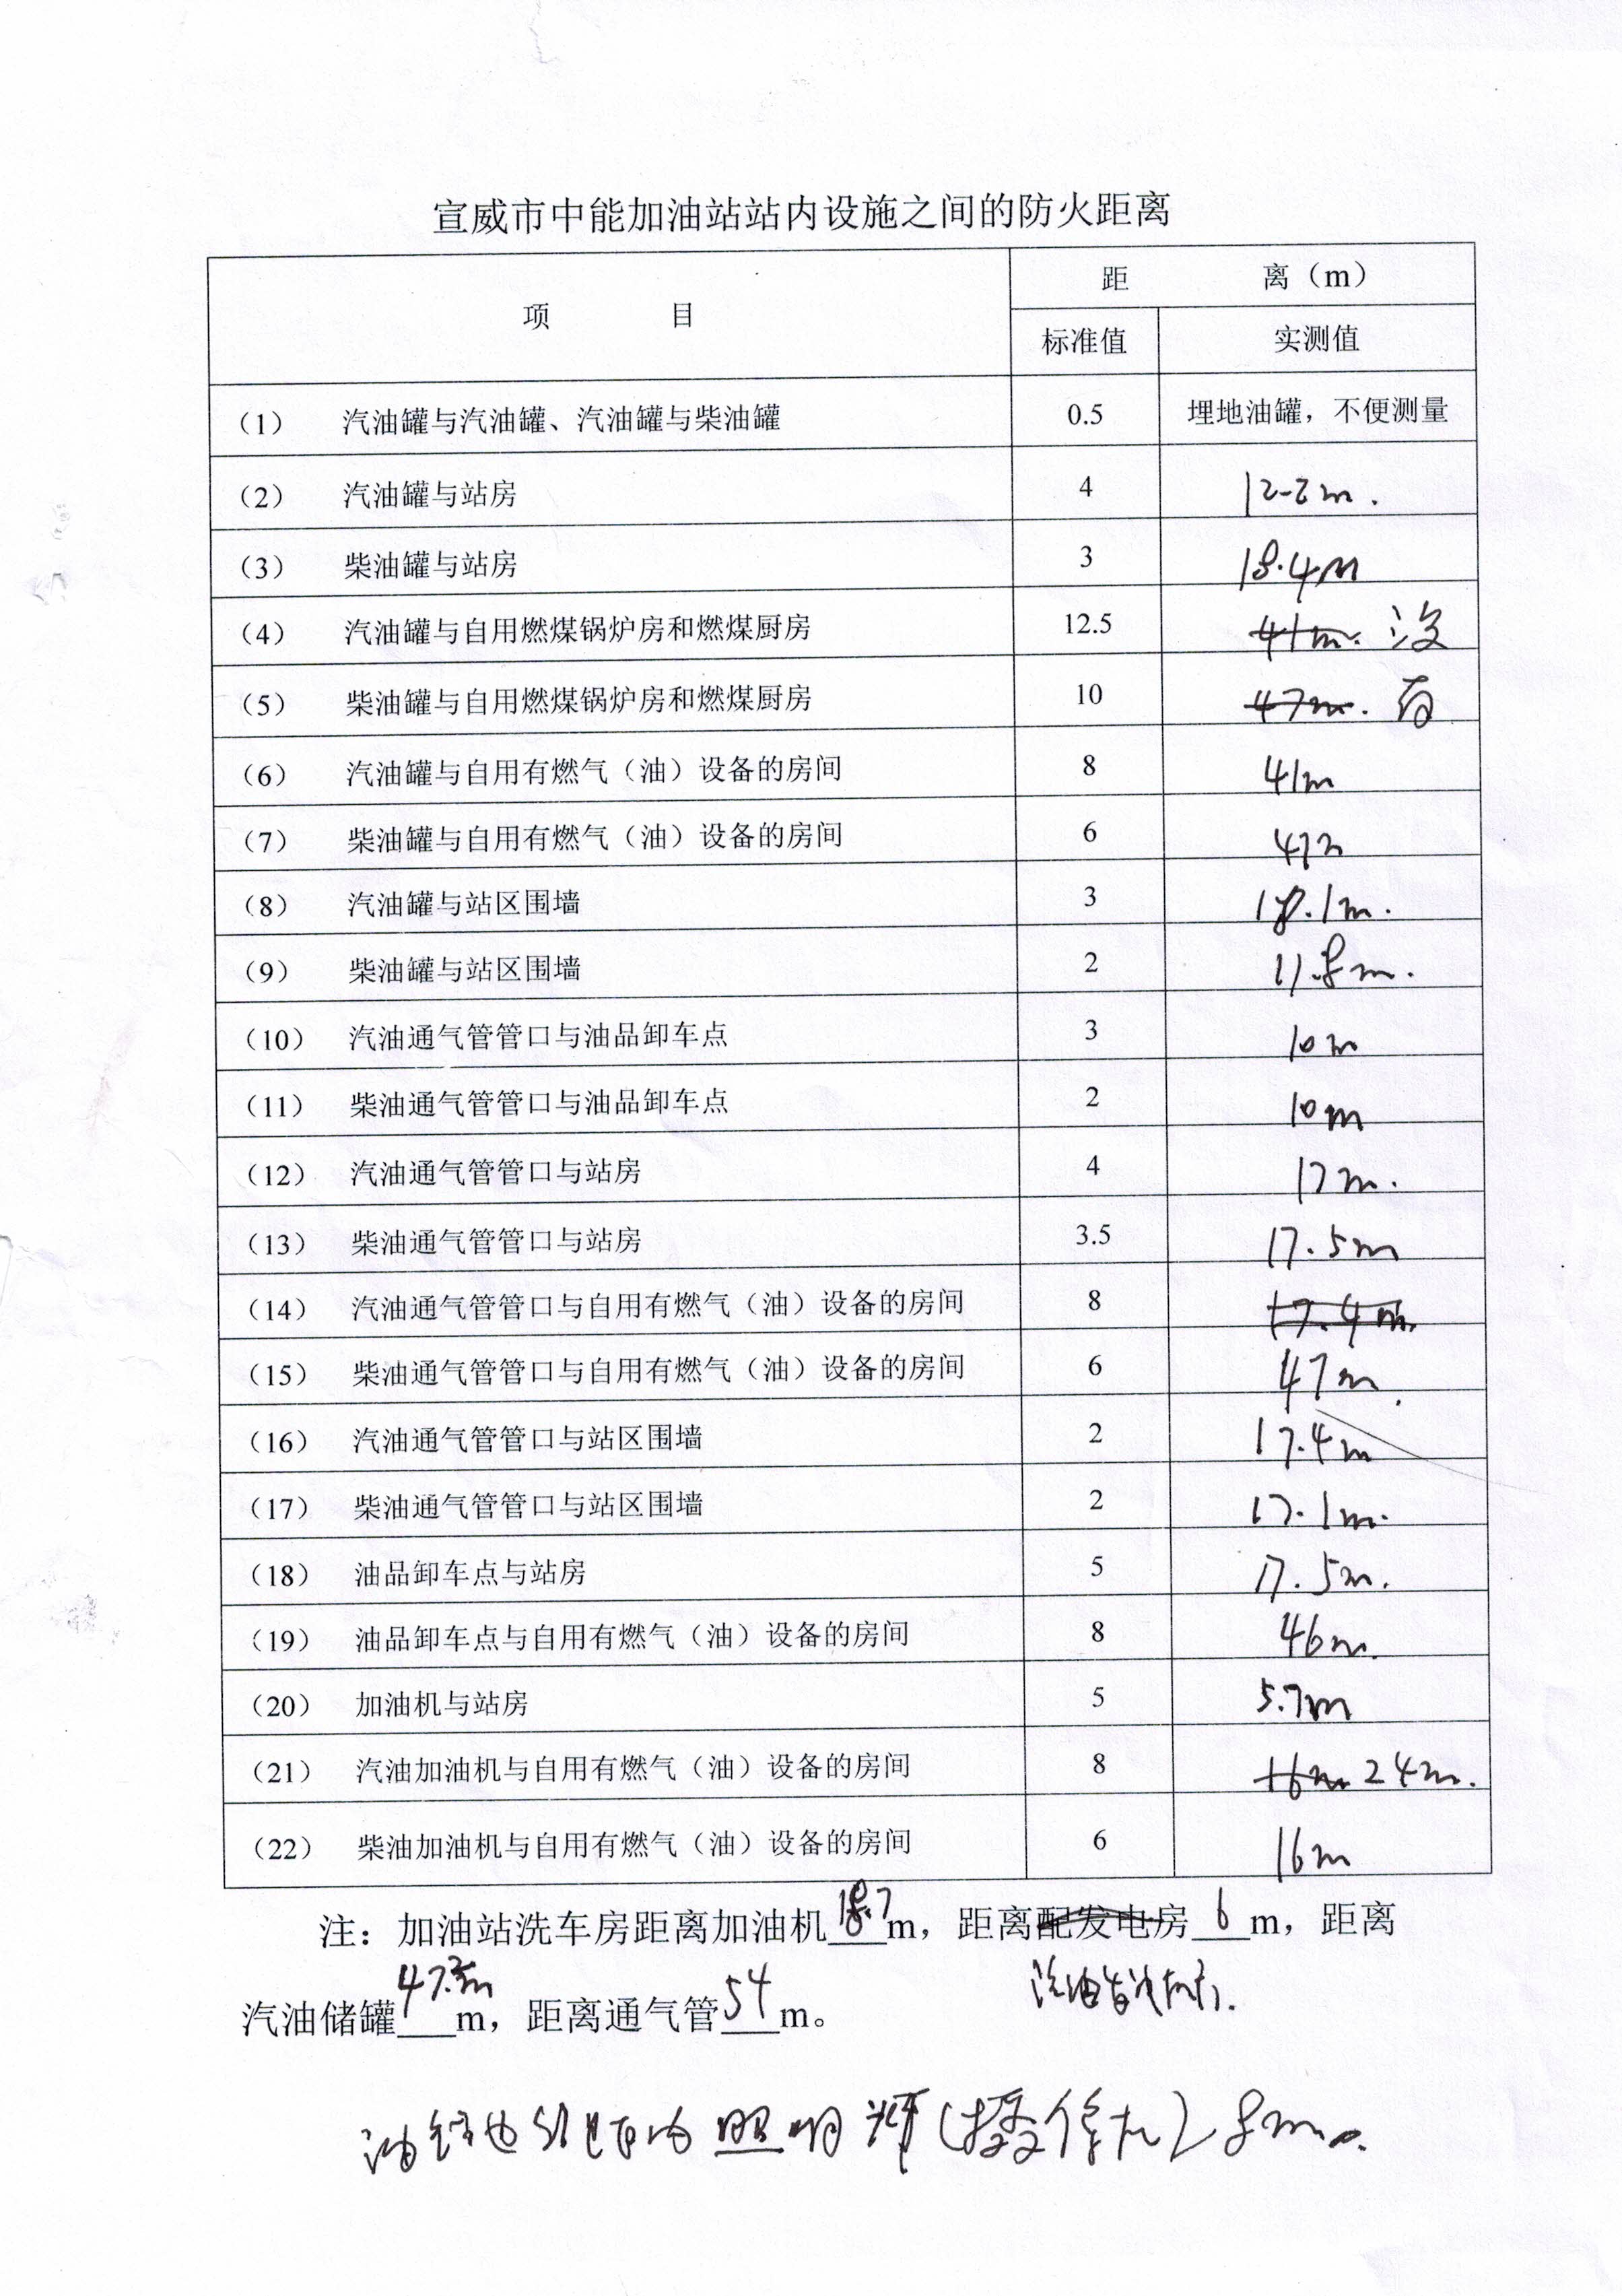 宣威市中能加油站站内设施之间的防火距离
项 目 距 离（m）
标准值 实测值
（1） 汽油罐与汽油罐、汽油罐与柴油罐 0.5 埋地油罐，不便测量
（2） 汽油罐与站房 4
（3） 柴油罐与站房 3 18.4m
（4） 汽油罐与自用燃煤锅炉房和燃煤厨房 12.5 41m. 没
（5） 柴油罐与自用燃煤锅炉房和燃煤厨房 10 47m. 有
（6） 汽油罐与自用有燃气（油）设备的房间 8 41m
（7） 柴油罐与自用有燃气（油）设备的房间 6
（8） 汽油罐与站区围墙 3 18.1m.
（9） 柴油罐与站区围墙 2 11.8m.
（10） 汽油通气管管口与油品卸车点 3 10m
（11） 柴油通气管管口与油品卸车点 2 10m
（12） 汽油通气管管口与站房 4 17m.
（13） 柴油通气管管口与站房 3.5 17.5m
（14） 汽油通气管管口与自用有燃气（油）设备的房间 8 17.4m.
（15） 柴油通气管管口与自用有燃气（油）设备的房间 6 47m.
（16） 汽油通气管管口与站区围墙 2 17.4m
（17） 柴油通气管管口与站区围墙 2 17.1m.
（18） 油品卸车点与站房 5 17.5m.
（19） 油品卸车点与自用有燃气（油）设备的房间 8 46m.
（20） 加油机与站房 5 5.7m
（21） 汽油加油机与自用有燃气（油）设备的房间 8 16m 24m.
（22） 柴油加油机与自用有燃气（油）设备的房间 6 16m
注：加油站洗车房距离加油机18.7m，距离配发电房 6 m，距离
汽油储罐 m，距离通气管54m。
照明 8m